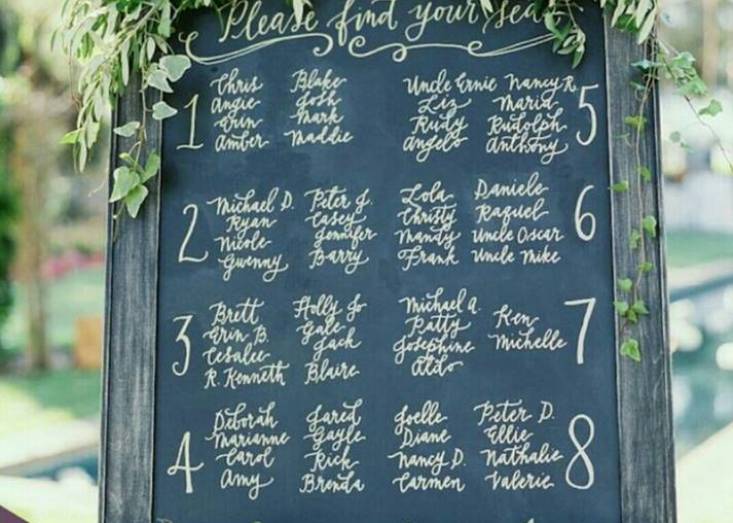 Please find your sea
1
Chris Blake
Angie Josh
Erin Mark
Amber Maddie
Uncle Ernie Nancy R.
Liz Maria
Rudy Rudolph
Angelo Anthony
5
2
Michael D. Peter J.
Ryan Casey
Nicole Jennifer
Gwenny Barry
Lola Daniele
Christy Raquel
Mandy Uncle Oscar
Frank Uncle Mike
6
3
Brett Holly Jo
Erin B. Gale
Cesalee Jack
R. Kenneth Blaire
Michael A.
Patty Ken
Josephine Michelle
Aldo
7
4
Deborah Jared
Marianne Gayle
Carol Rick
Amy Brenda
Joelle Peter D.
Diane Ellie
Nancy D. Nathalie
Carmen Valerie
8